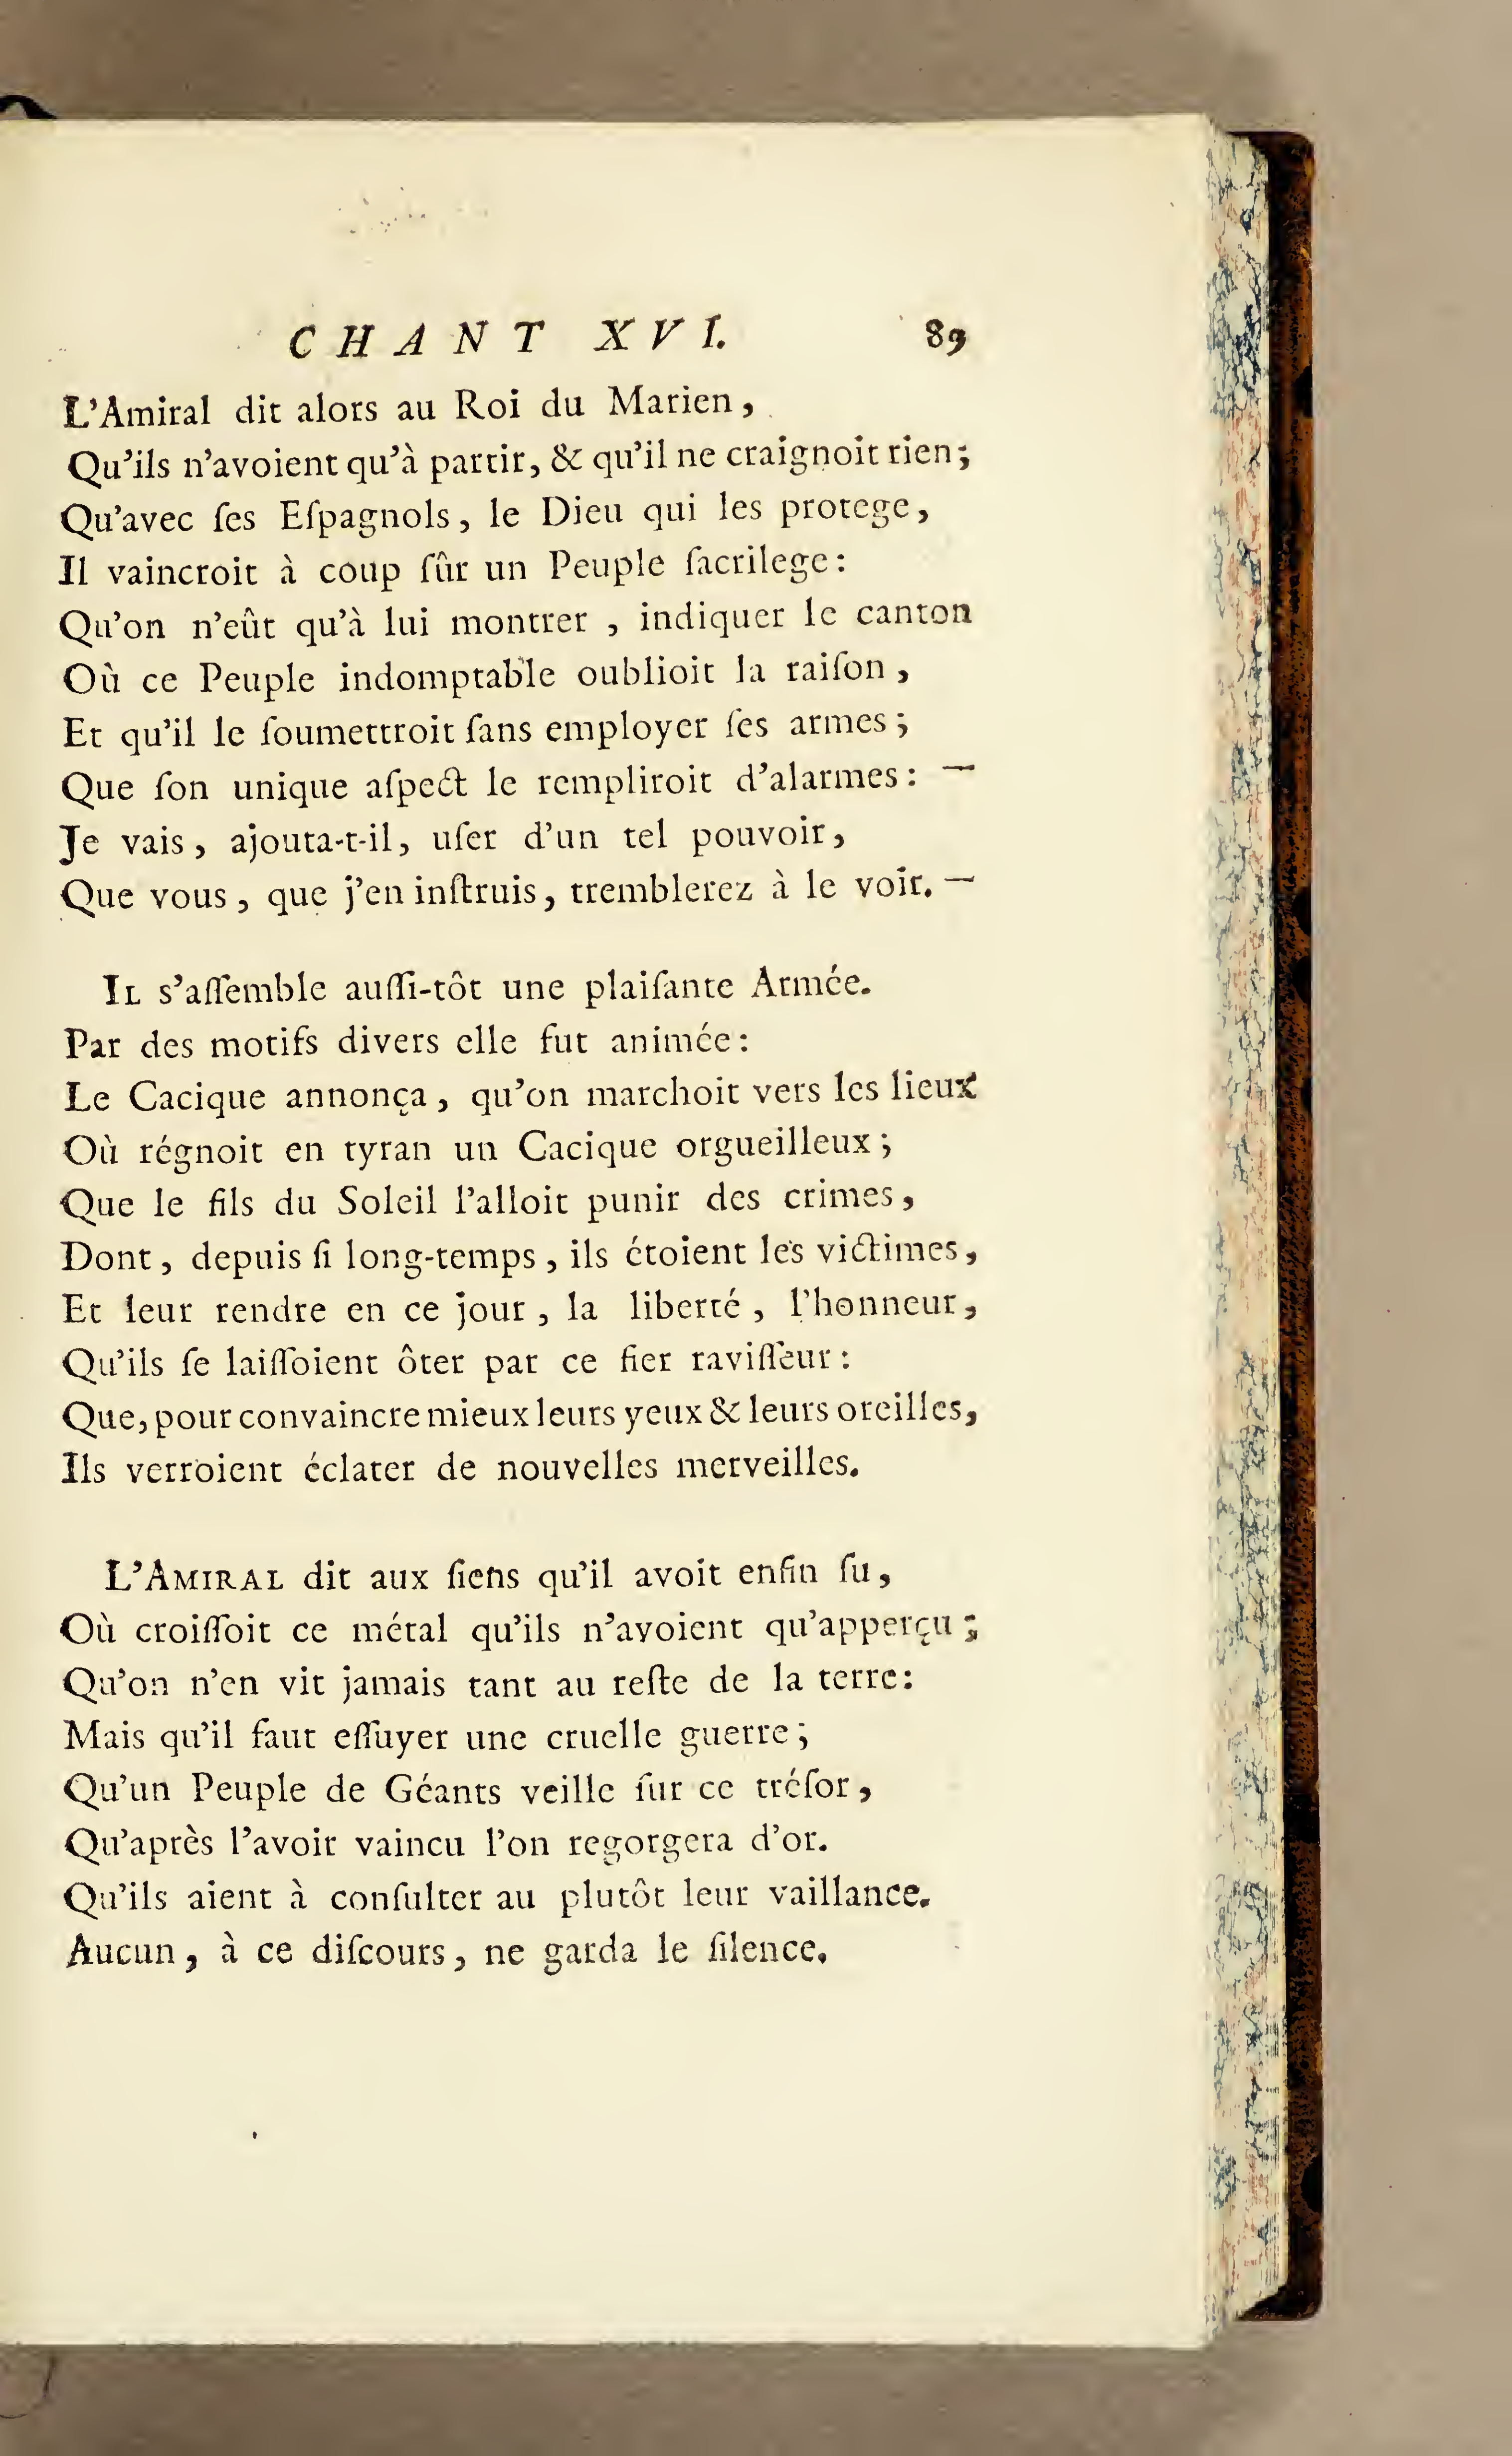 CHANT XVI. 89
L'Amiral dit alors au Roi du Marien,
Qu'ils n'avoient qu'à partir, & qu'il ne craignoit rien;
Qu'avec ſes Eſpagnols, le Dieu qui les protege,
Il vaincroit à coup ſûr un Peuple ſacrilege:
Qu'on n'eût qu'à lui montrer , indiquer le canton
Où ce Peuple indomptable oublioit la raiſon,
Et qu'il le ſoumettroit ſans employer ſes armes;
Que ſon unique aſpect le rempliroit d'alarmes: —
Je vais, ajouta-t-il, uſer d'un tel pouvoir,
Que vous, que j'en inſtruis, tremblerez à le voir. —
IL s'aſſemble auſſi-tôt une plaiſante Armée.
Par des motifs divers elle fut animée:
Le Cacique annonça, qu'on marchoit vers les lieux
Où régnoit en tyran un Cacique orgueilleux;
Que le fils du Soleil l'alloit punir des crimes,
Dont, depuis ſi long-temps, ils étoient les victimes,
Et leur rendre en ce jour, la liberté, l'honneur,
Qu'ils ſe laiſſoient ôter par ce fier raviſſeur:
Que, pour convaincre mieux leurs yeux & leurs oreilles,
Ils verroient éclater de nouvelles merveilles.
L'AMIRAL dit aux ſiens qu'il avoit enfin ſu,
Où croiſſoit ce métal qu'ils n'avoient qu'apperçu;
Qu'on n'en vit jamais tant au reſte de la terre:
Mais qu'il faut eſſuyer une cruelle guerre;
Qu'un Peuple de Géants veille ſur ce tréſor,
Qu'après l'avoir vaincu l'on regorgera d'or.
Qu'ils aient à conſulter au plutôt leur vaillance.
Aucun, à ce diſcours, ne garda le ſilence.